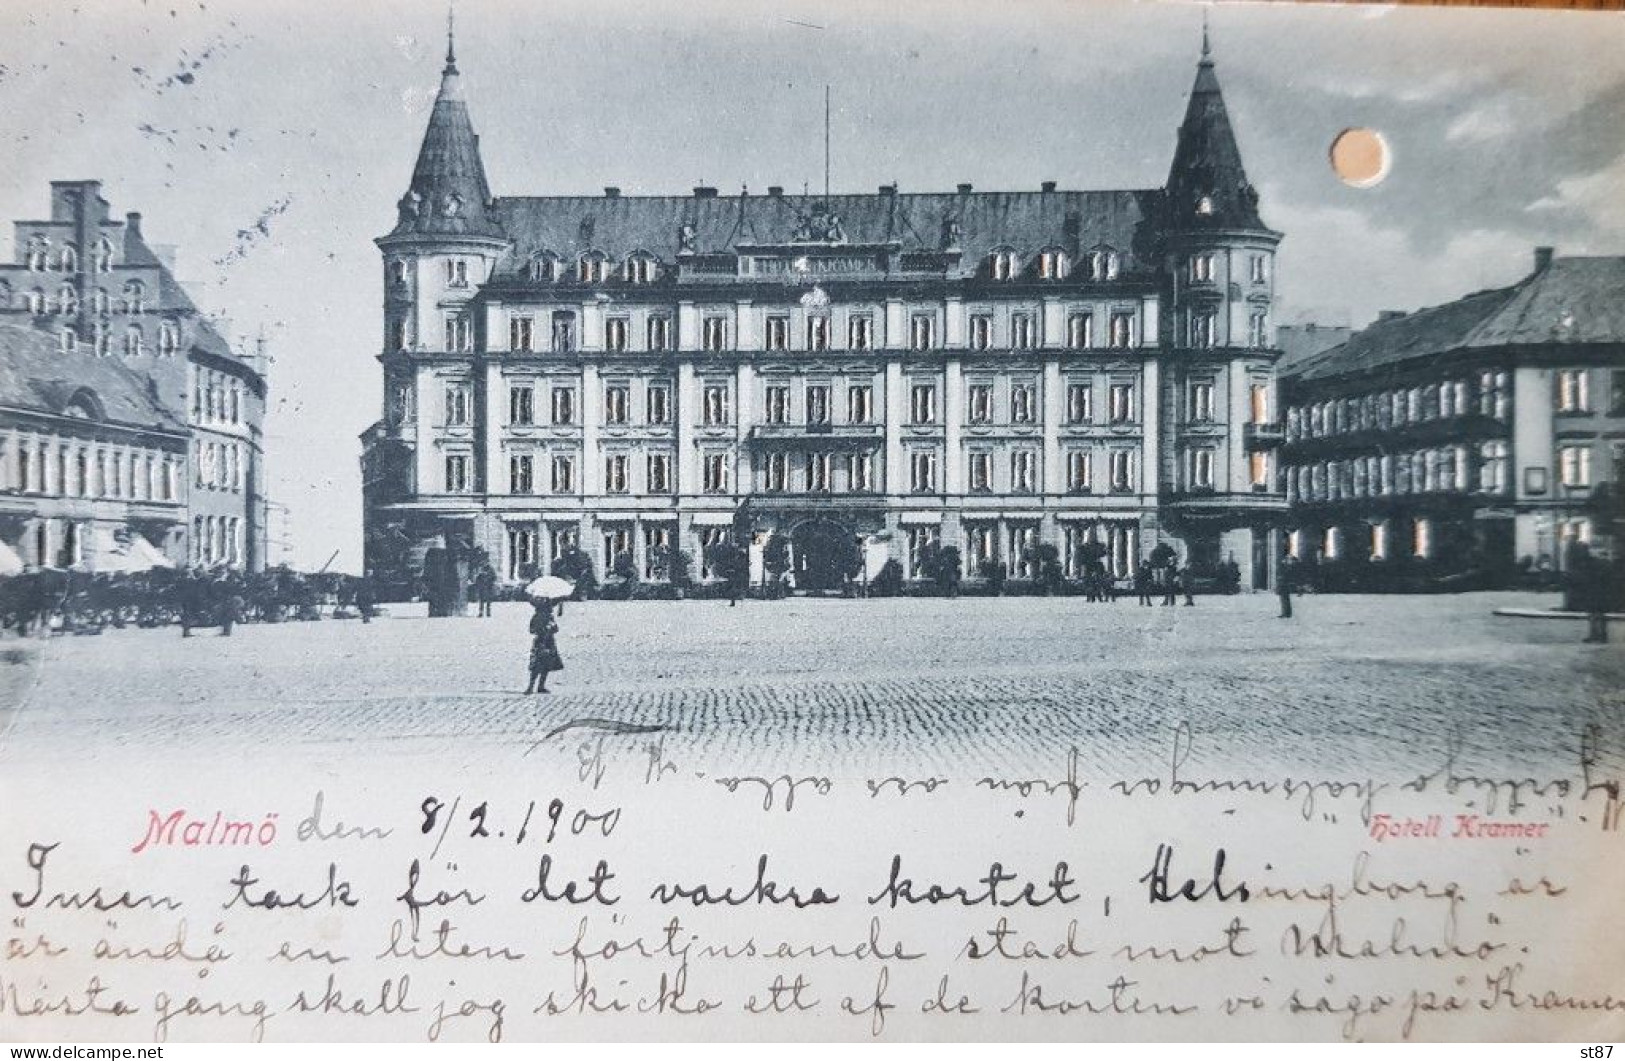 HOTELL KRAMER
Hjärtliga hälsningar från oss alla. M. B
Malmö den 8/2. 1900
Hotell Kramer
Tusen tack för det vackra kortet, Helsingborg är
är ändå en liten förtjusande stad mot Malmö.
Nästa gång skall jag skicka ett af de korten vi sågo på Kramer
st87